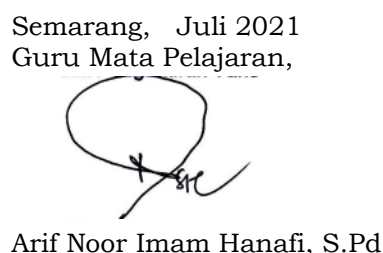 Semarang,   Juli 2021
Guru Mata Pelajaran,
Arif Noor Imam Hanafi, S.Pd